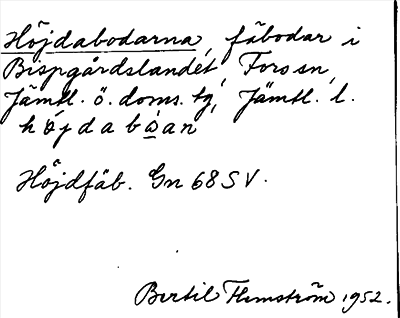 Höjdabodarna, fäbodar i
Bispgårdslandet, Fors sn,
Jämtl. ö. doms. tg, Jämtl. l.
höjdabòan
Höjdfäb. Gn 68 SV.
Bertil Flemström 1952.